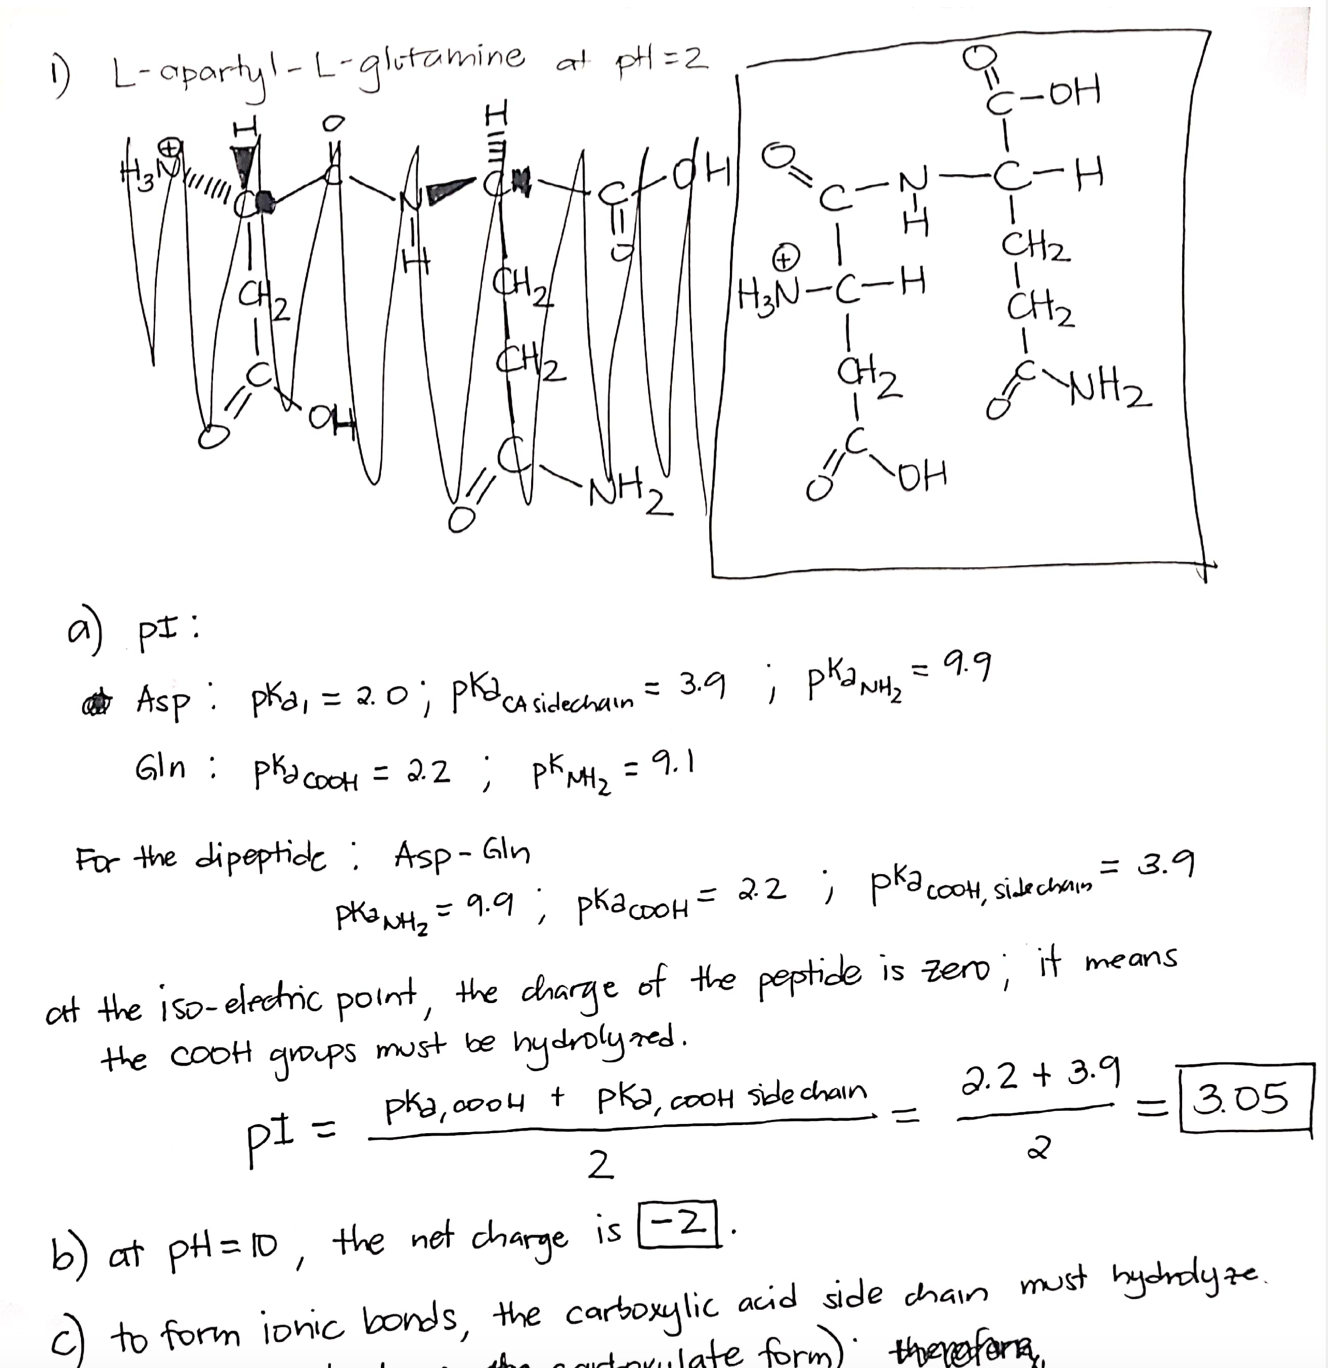 1) L-apartyl-L-glutamine at pH=2
H H
O
H₃N⊕ C C N C C OH
H O
CH₂ CH₂
CH₂
C
O OH
C
O NH₂
O
C-OH
O
C-N-C-H
H
CH₂
⊕
H₃N-C-H
CH₂
CH₂
C NH₂
O
C
O OH
a) pI:
Asp: pKa₁ = 2.0; pKa CA sidechain = 3.9 ; pKa NH₂ = 9.9
Gln: pKa COOH = 2.2 ; pK NH₂ = 9.1
For the dipeptide : Asp-Gln
pKa NH₂ = 9.9 ; pKa COOH = 2.2 ; pKa COOH, sidechain = 3.9
at the iso-electric point, the charge of the peptide is zero; it means
the COOH groups must be hydrolyzed.
pI = pKa, COOH + pKa, COOH sidechain / 2 = 2.2 + 3.9 / 2 = 3.05
b) at pH=10, the net charge is -2.
c) to form ionic bonds, the carboxylic acid side chain must hydrolyze.
the form); therefore,